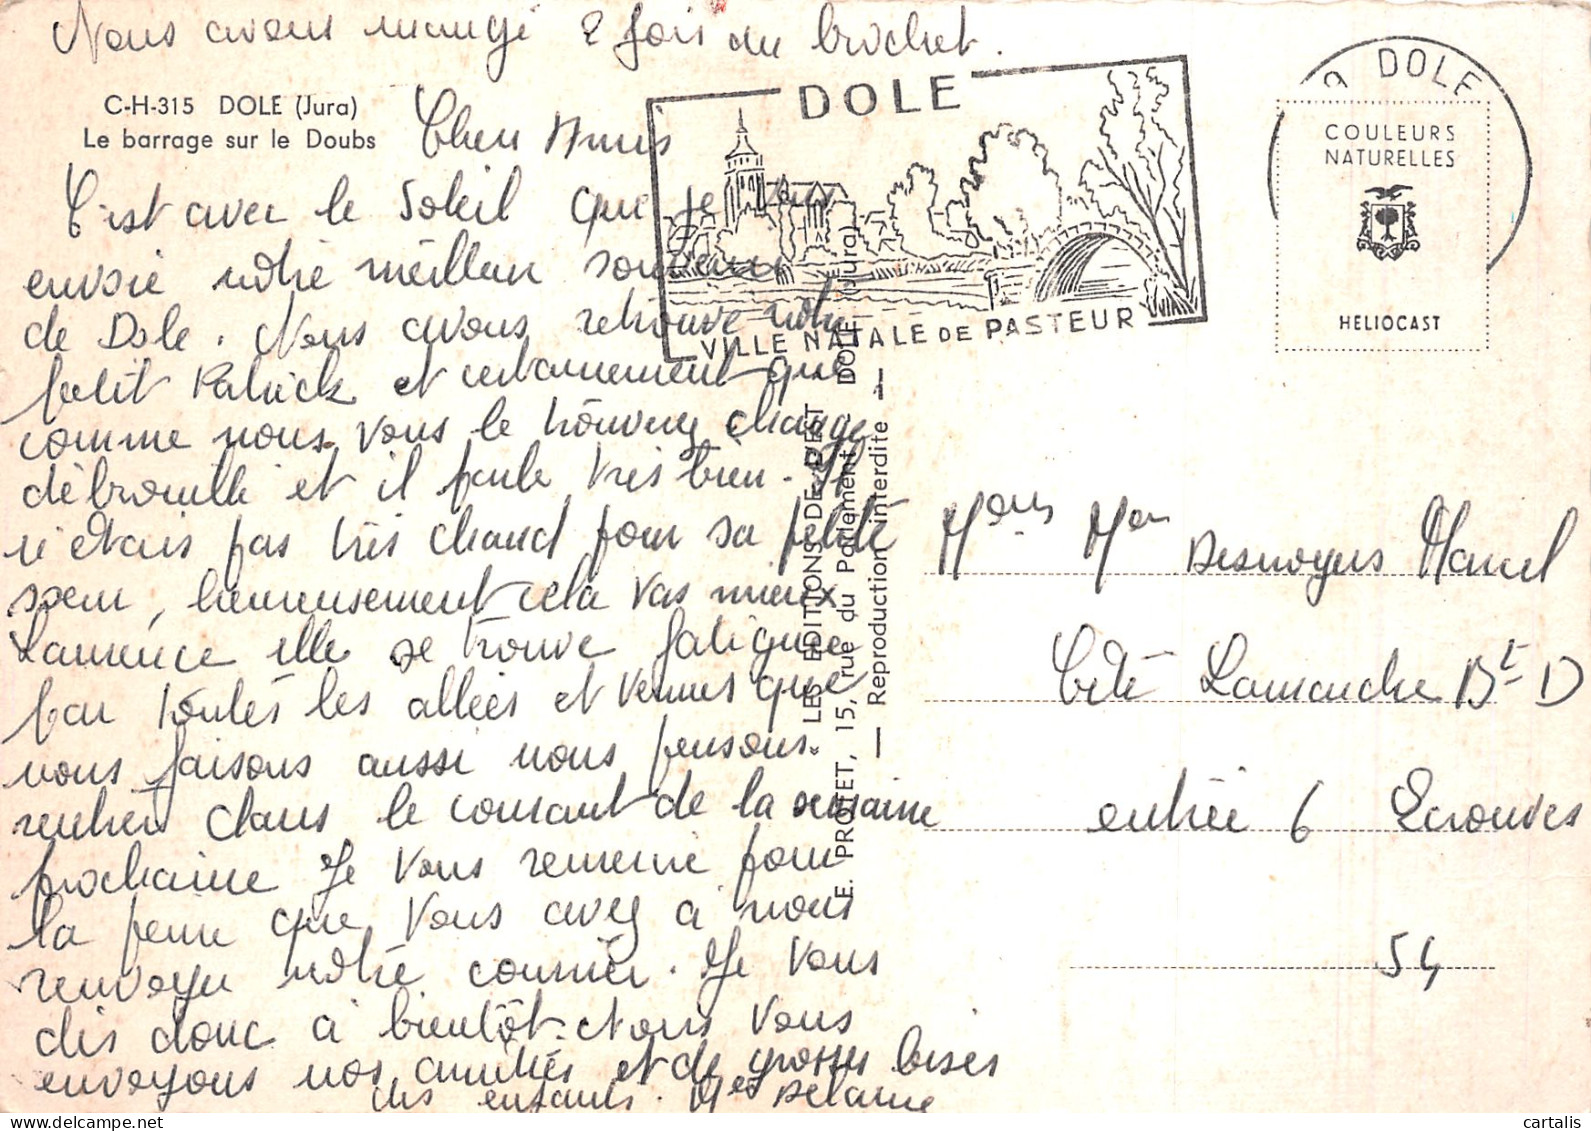 Nous avons mangé 2 fois du brochet.
C-H-315 DOLE (Jura)
Le barrage sur le Doubs
Cher Amis
C'est avec le Soleil que je vous
envoie notre meilleur souvenir
de Dole. Nous avons retrouve notre
petit Patrick et certainement que
comme nous vous le trouverez change
débrouille et il parle très bien. Il
n'etais pas très chaud pour sa petite
soeur, heureusement cela vas mieux
Laurence elle se trouve fatiguée
par toutes les allées et venues que
nous faisons aussi nous pensons
rentrer dans le courant de la semaine
prochaine Je vous remercie pour
la peine que vous avez a nous
renvoyer notre courrier. Je vous
dis donc a bientôt. Nous vous
envoyons nos amitiés et de grosses bises
des enfants. Mes Delaine
DOLE
VILLE NATALE DE PASTEUR
DOLE
COULEURS
NATURELLES
HELIOCAST
LES EDITIONS DE L'EST
E. PROTET, 15, rue du Parlement - DOLE (Jura)
— Reproduction interdite —
Desnoyers Marcel
Cité Lamarche Bt D
entrée 6 Ecrouves
54
cartalis
www.delcampe.net